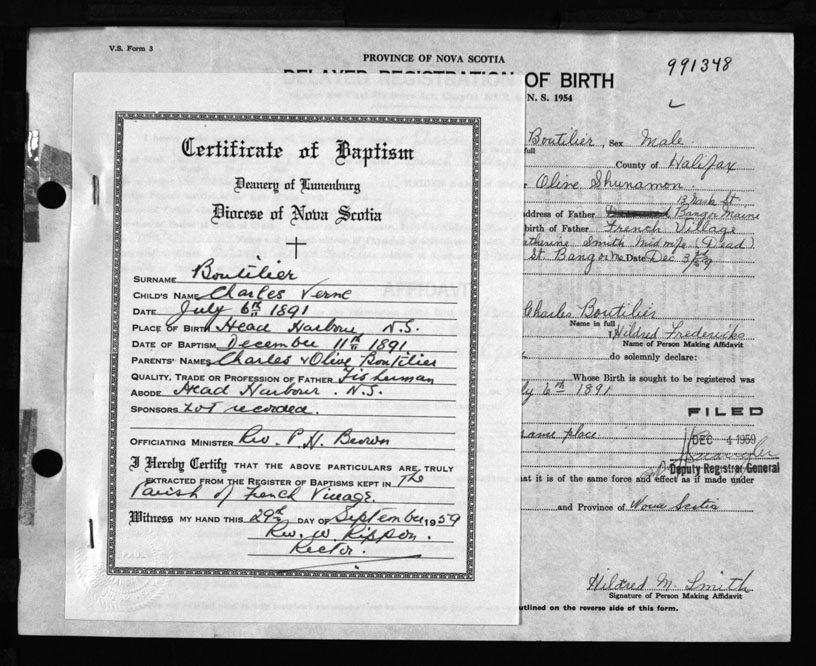 V.S. Form 3
PROVINCE OF NOVA SCOTIA
DELAYED REGISTRATION OF BIRTH
991348
N. S. 1954
Certificate of Baptism
Deanery of Lunenburg
Diocese of Nova Scotia
SURNAME Boutilier
CHILD'S NAME Charles Verne
DATE July 6th 1891
PLACE OF BIRTH Head Harbour N.S.
DATE OF BAPTISM December 11th 1891
PARENTS' NAMES Charles & Olive Boutilier
QUALITY, TRADE OR PROFESSION OF FATHER Fisherman
ABODE Head Harbour . N.S.
SPONSORS not recorded.
OFFICIATING MINISTER Rev. P. H. Brown
I Hereby Certify THAT THE ABOVE PARTICULARS ARE TRULY
EXTRACTED FROM THE REGISTER OF BAPTISMS KEPT IN The
Parish of French Village.
Witness MY HAND THIS 29th DAY OF September 1959
Rev. W. Rippon.
Rector.
Boutilier, Sex Male
full
County of Halifax
Olive Shunamon.
13 Park St
address of Father Bangor Maine
birth of Father French Village
Catherine Smith Midwife (Dead)
St. Bangor Me Date Dec 3rd/59
Charles Boutilier
Name in full
I, Hildred Fredericks
Name of Person Making Affidavit
do solemnly declare:
Whose Birth is sought to be registered was
July 6th 1891
FILED
same place
DEC 4 1959
Deputy Registrar General
at it is of the same force and effect as if made under
and Province of Nova Scotia
Hildred M. Smith
Signature of Person Making Affidavit
outlined on the reverse side of this form.